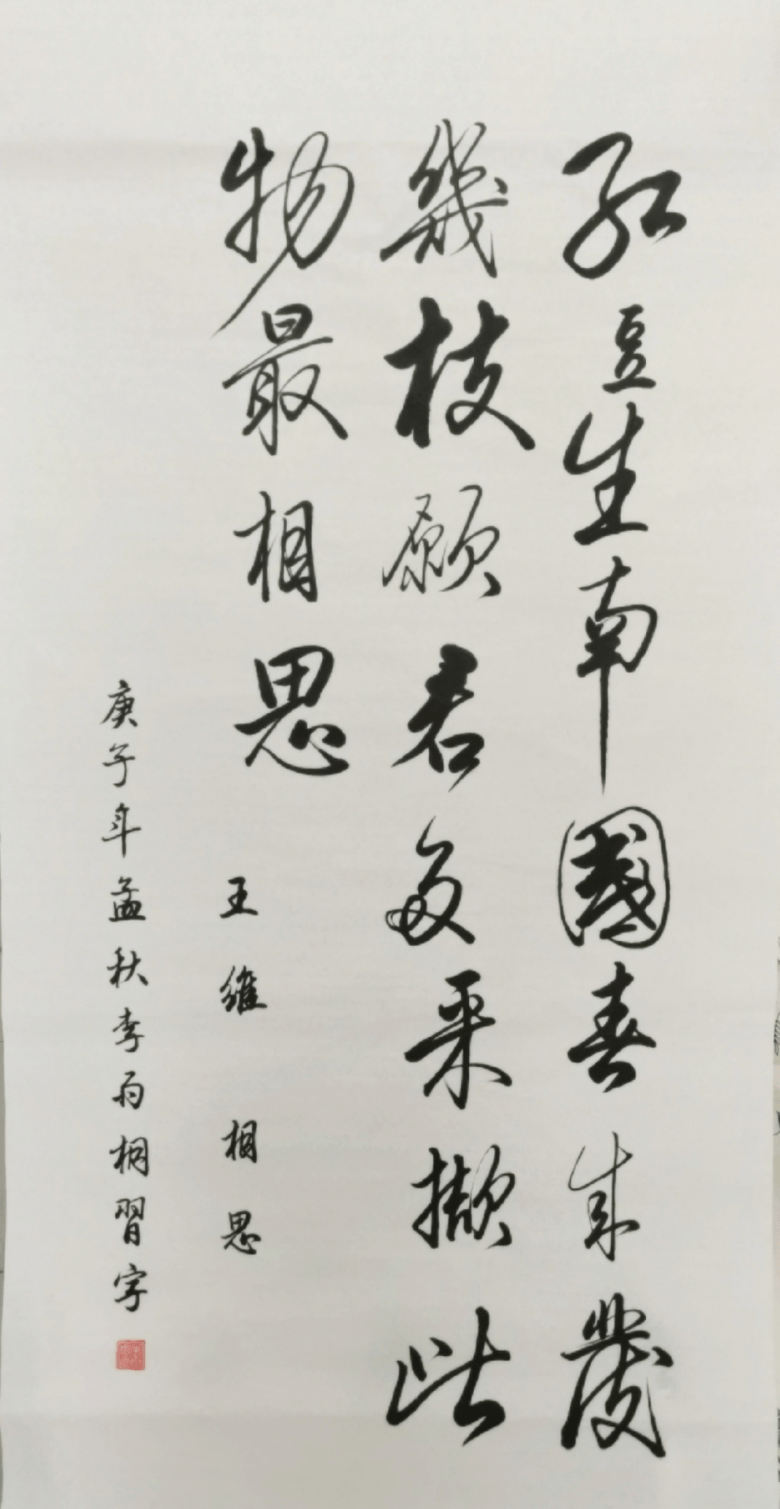 红豆生南國春来發
幾枝願君多采撷此
物最相思
王維 相思
庚子年孟秋李雨桐習字